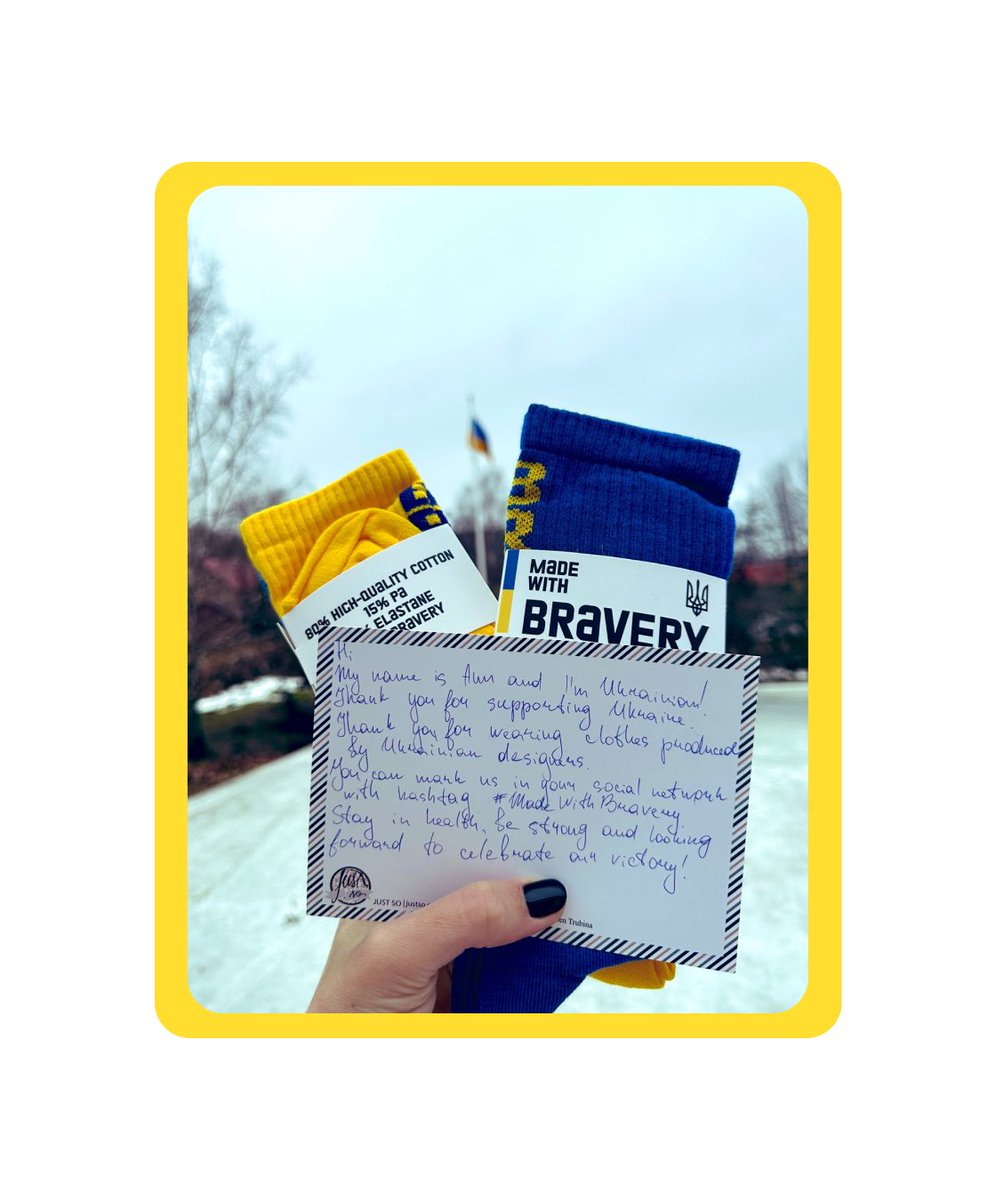 80% HIGH-QUALITY COTTON
15% PA
ELASTANE
BRAVERY
MADE
WITH
BRAVERY
Hi
My name is Ann and I'm Ukrainian!
Thank you for supporting Ukraine.
Thank you for wearing clothes produced
by Ukrainian designers.
You can mark us in your social network
with hashtag #MadeWithBravery
Stay in health, be strong and looking
forward to celebrate our victory!
Just
so
JUST SO | justso
Trubina